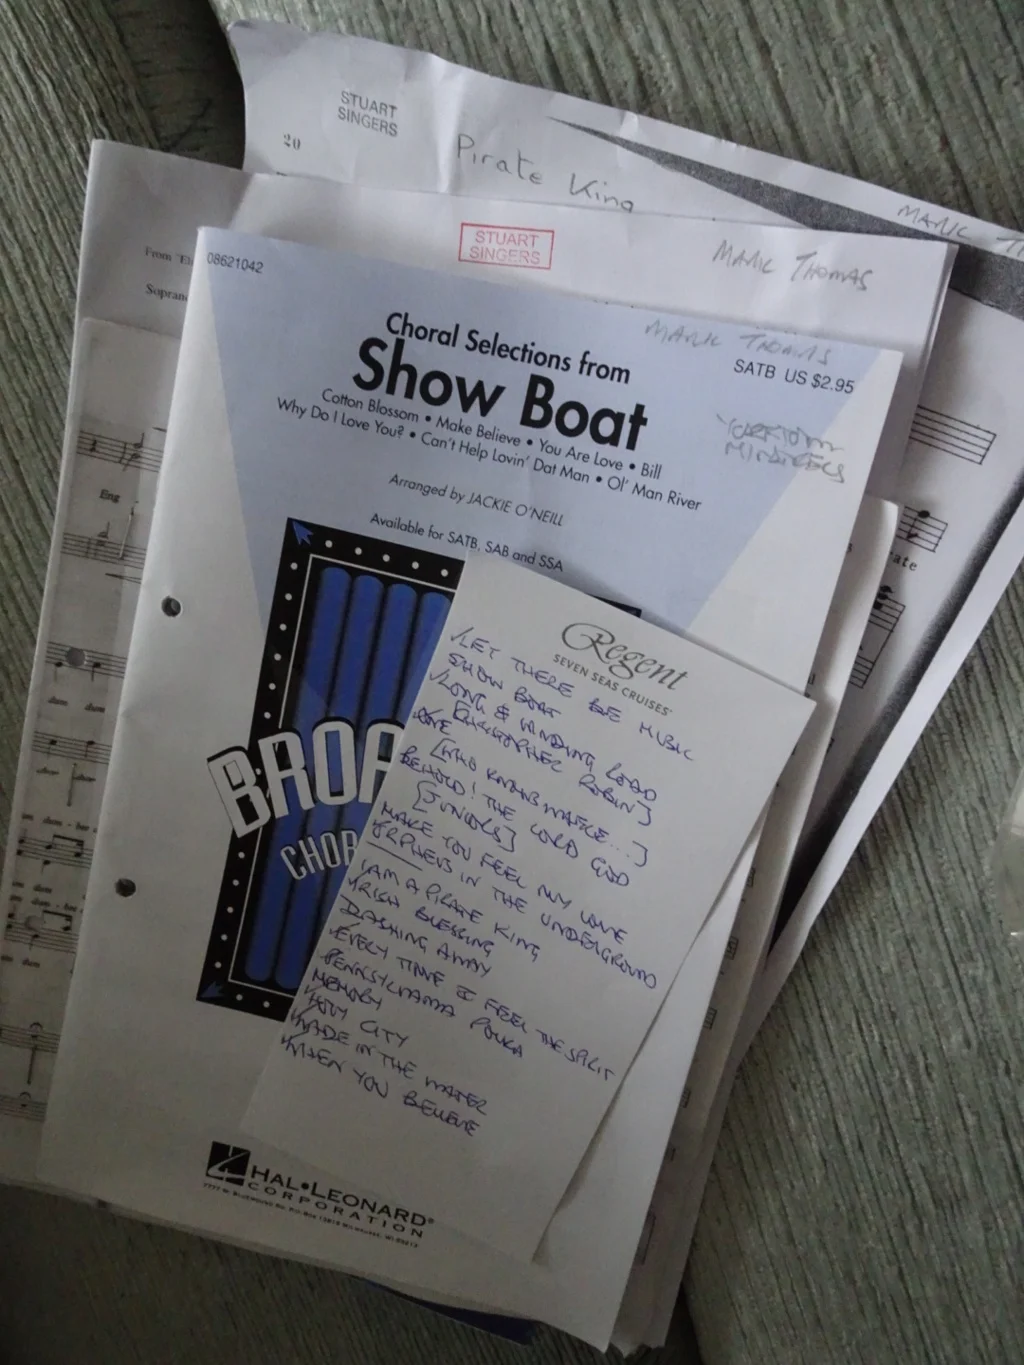 STUART
SINGERS
20
Pirate King
MARK
STUART
SINGERS
MARK THOMAS
From "El
Sopran
08621042
Choral Selections from
MARK THOMAS
Show Boat
SATB US $2.95
Cotton Blossom • Make Believe • You Are Love • Bill
Why Do I Love You? • Can't Help Lovin' Dat Man • Ol' Man River
Arranged by JACKIE O'NEILL
Available for SATB, SAB and SSA
Eng
ate
BROA
CHOR
Regent
SEVEN SEAS CRUISES
LET THERE BE MUSIC
SHOW BOAT
LONG & WINDING ROAD
[CHRISTOPHER ROBIN]
[WHO KNOWS MAZIE...]
BEHOLD! THE LORD GOD
[JUNIORS]
MAKE YOU FEEL MY LOVE
ORPHEUS IN THE UNDERGROUND
I AM A PIRATE KING
IRISH BLESSING
DASHING AWAY
EVERY TIME I FEEL THE SPIRIT
PENNSYLVANIA POLKA
MEMORY
HOLY CITY
WADE IN THE WATER
WHEN YOU BELIEVE
dum dum
dum
dum
HAL•LEONARD®
CORPORATION